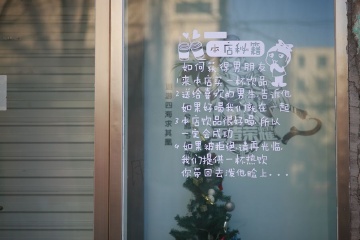 小店秘籍
如何获得男朋友
1 来小店买一杯饮品
2 送给喜欢的男生 告诉他
如果好喝我们就在一起
3 小店饮品很好喝 所以
一定会成功
4 如果被拒绝 请再光临
我们提供一杯热饮
你带回去泼他脸上...